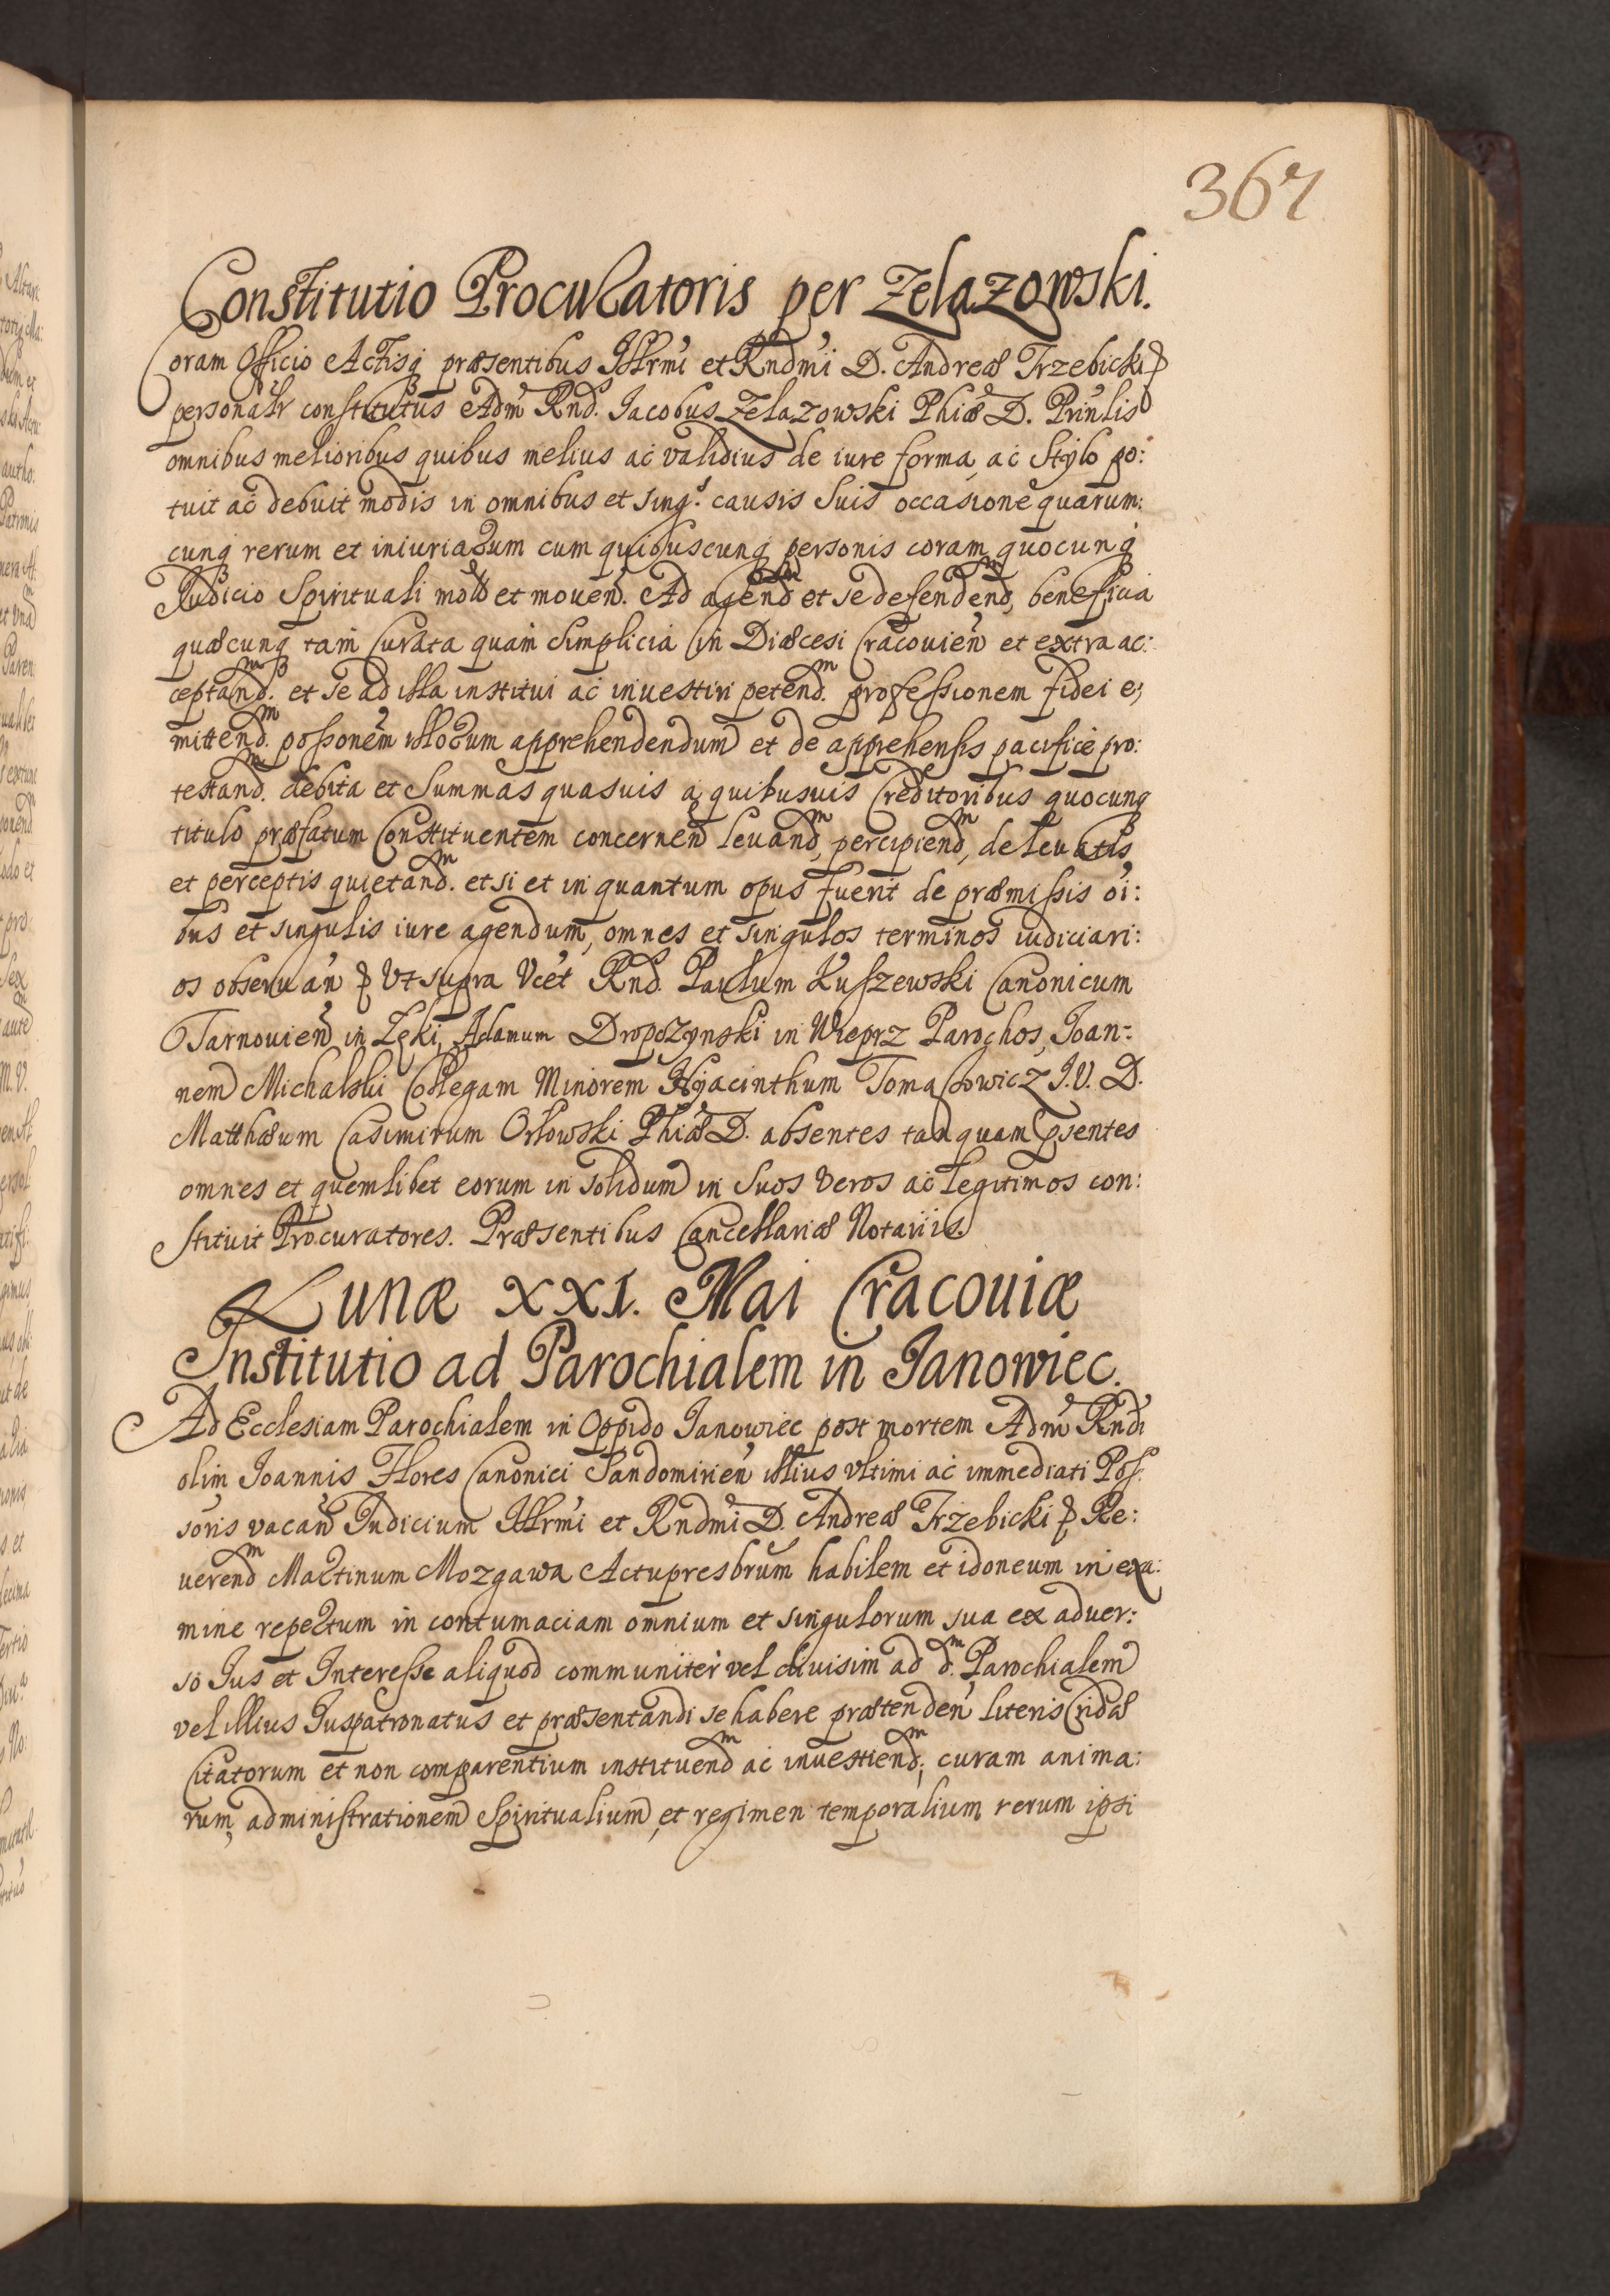 367
Constitutio Procuratoris per Zelazowski.
Coram Officio Actisq præsentibus Illrmi et Rndmi D. Andreæ Trzebicki &
personalr constitutus Adm Rnd. Jacobus Zelazowski Phiæ D. Prinlis
omnibus melioribus quibus melius ac validius de iure forma ac Stylo po:
tuit ac debuit modis in omnibus et sing. causis Suis occasione quarum:
cunq rerum et iniuriarum cum quibuscunq personis coram quocunq
Judicio Spirituali mot et mouen. Ad agend et se defendend, beneficia
quæcunq tam Curata quam Simplicia in Diæcesi Cracouien et extra ac:
ceptand. et se ad illa institui ac inuestiri petend. professionem fidei e;
mittend. possonem illorum apprehendendum et de apprehensis pacifice pro:
testand. debita et Summas quasuis a quibusuis Creditoribus quocunq
titulo præfatum Constituentem concernen leuand, percipiend, de leuatis
et perceptis quietand. et si et in quantum opus fuerit de præmissis oi:
bus et singulis iure agendum, omnes et singulos terminos iudiciari:
os obseruan & Vt supra Vcet Rnd. Paulum Kuszewski Canonicum
Tarnouien in Zęki, Adamum Dropczynski in Wieprz Parochos, Joan:
nem Michalski Collegam Minorem Hyacinthum Tomaszowicz J.V.D.
Matthæum Casimirum Orłowski Phiæ D. absentes tanquam psentes
omnes et quemlibet eorum in solidum in Suos Veros ac Legitimos con:
stituit Procuratores. Præsentibus Cancellariæ Notariis.
Lunæ XXI. Mai Cracouiæ
Institutio ad Parochialem in Janowiec.
Ad Ecclesiam Parochialem in Oppido Janowiec post mortem Adm Rndi
olim Joannis Flores Canonici Sandomirien illius vltimi ac immediati Poss:
soris vacan Judicium Illrmi et Rndmi D. Andreæ Trzebicki & Re:
uerend Martinum Mozgawa Actupresbrum habilem et idoneum in exa:
mine repertum in contumaciam omnium et singulorum sua ex aduer:
so Jus et Interesse aliquod communiter vel diuisim ad d. Parochialem
vel illius Juspatronatus et præsentandi se habere prætenden literis Cridæ
Citatorum et non comparentium instituend ac inuestiend; curam anima:
rum, administrationem Spiritualium, et regimen temporalium rerum ipsi